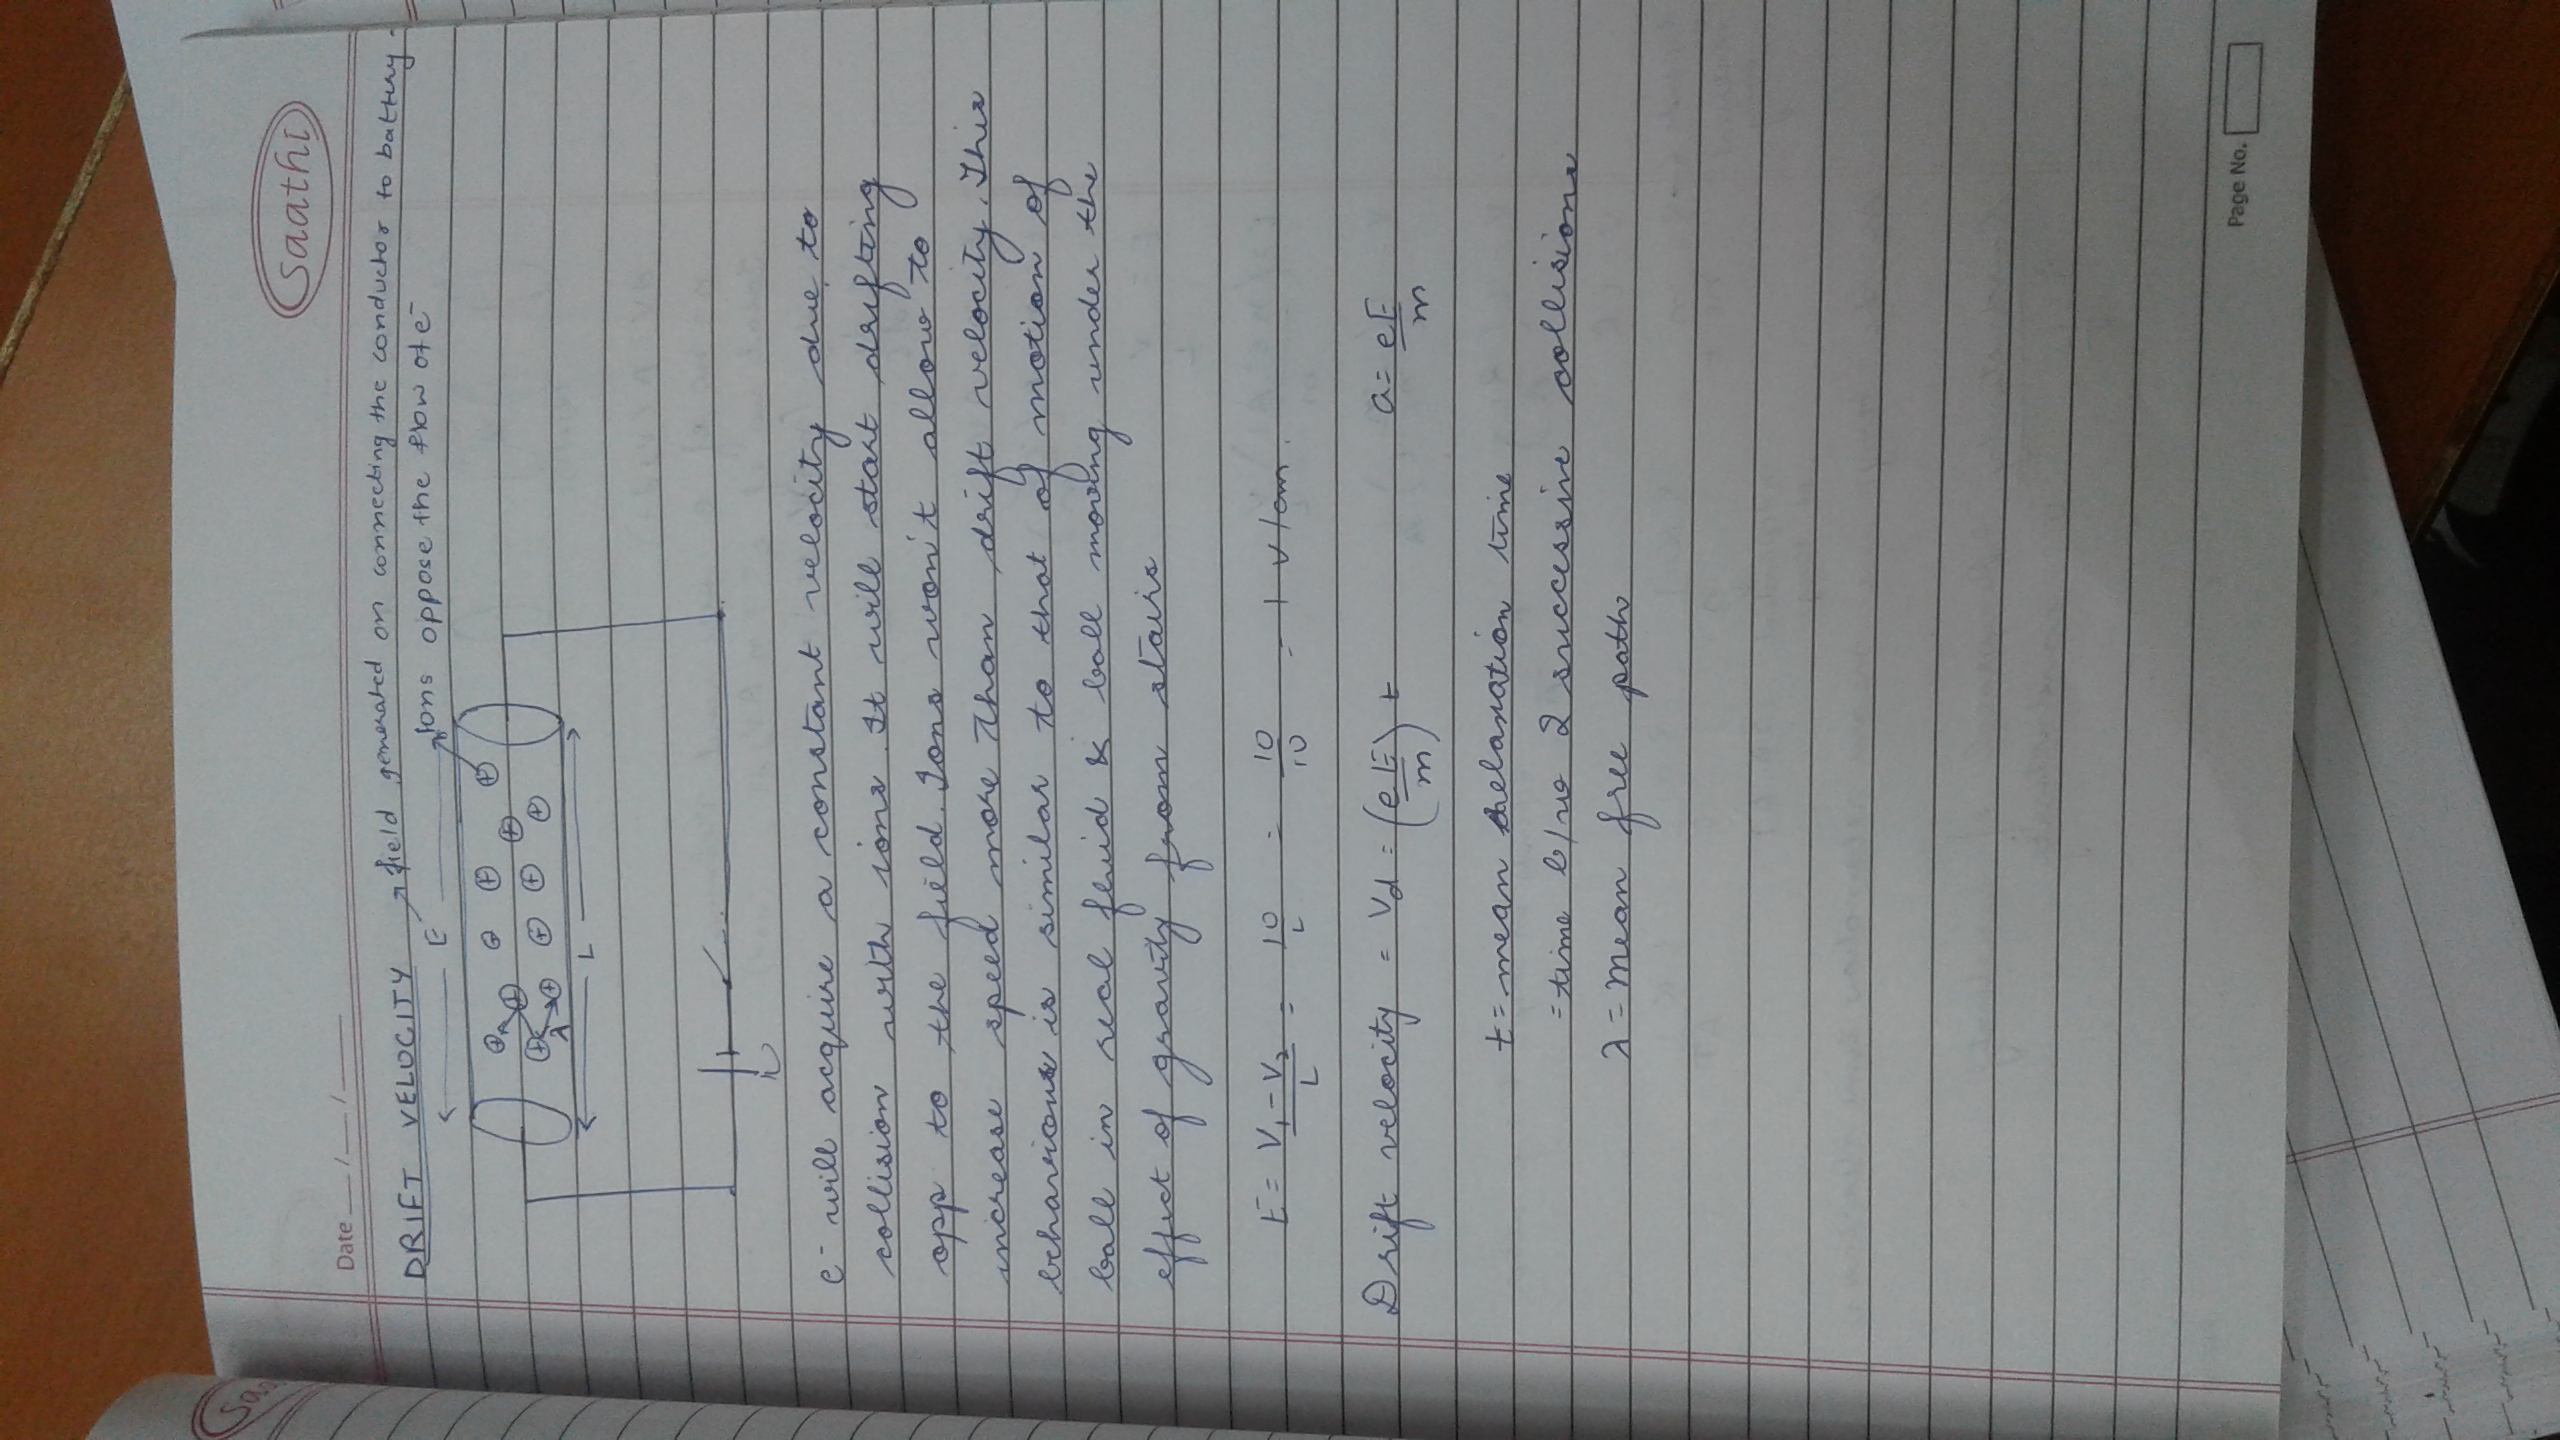 saathi
Date __/__/____
DRIFT VELOCITY → field generated on connecting the conductor to battery.
E
Ions oppose the flow of e⁻
λ
L
e⁻ will acquire a constant velocity due to
collision with ions. It will start drifting
opp to the field. Ions won't allow to
increase speed more than drift velocity. This
behaviour is similar to that of motion of
ball in real fluid & ball moving under the
effect of gravity from stairs
E = (V₁ - V₂)/L = 10/L = 10/10 = 1 V/cm.
Drift velocity = Vd = (eE/m) t a = eE/m
t = mean relaxation time
= time b/w 2 successive collisions
λ = mean free path
Page No.